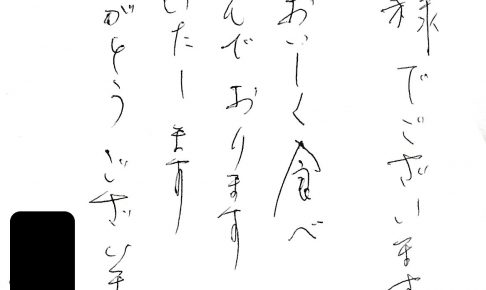 様でございます
おいしく食べ
んでおります
いたします
がとうございま